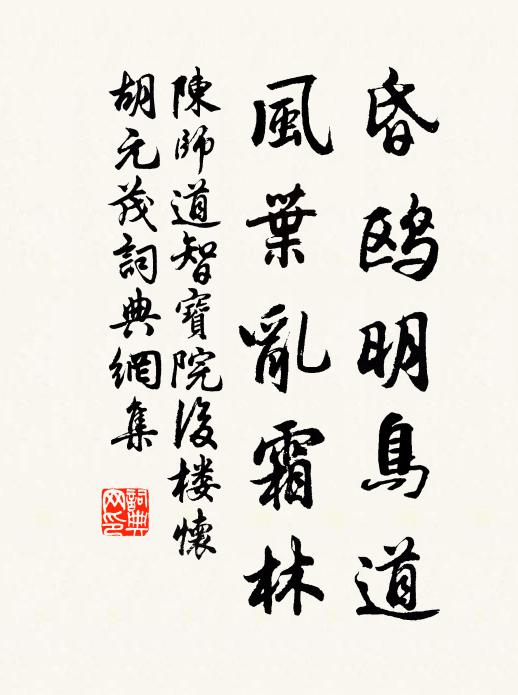 昏鸥明鳥道
風葉亂霜林
陳師道智寶院後楼懷
胡元茂詞典網集
詞典网印